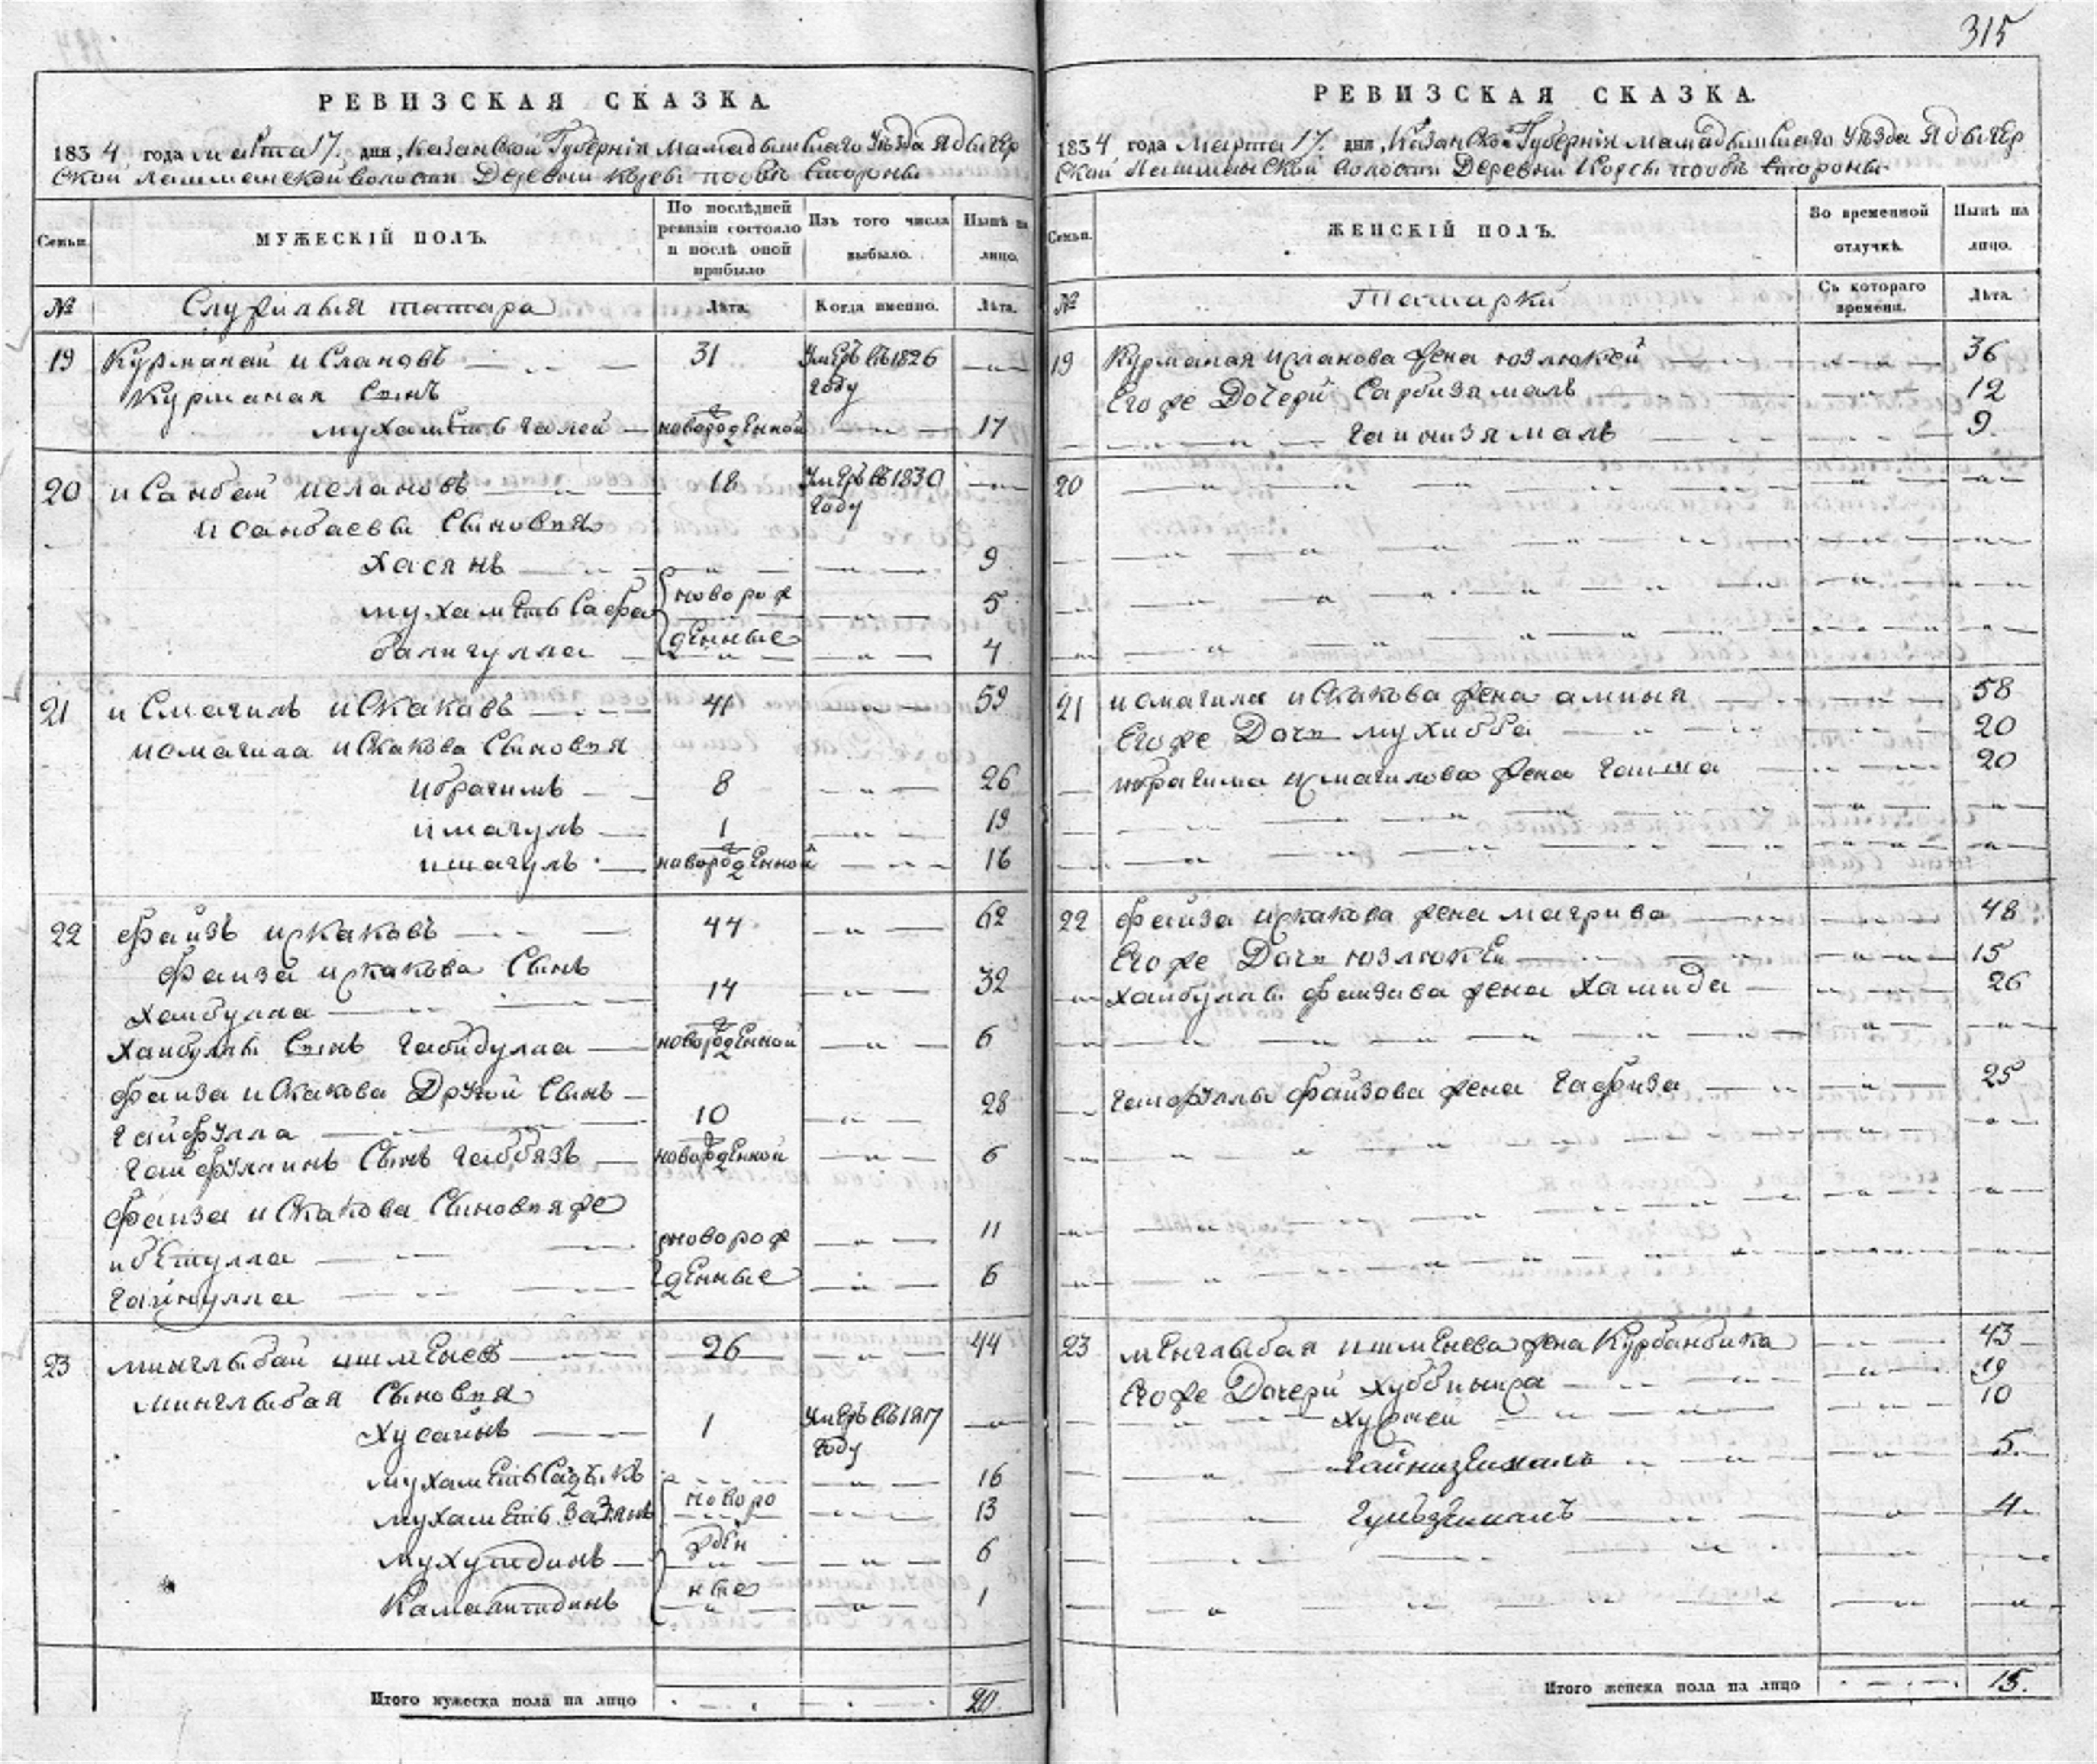 315
РЕВИЗСКАЯ СКАЗКА.
1834 года марта 17. дня, Казанской Губернiи Мамадышскаго Уѣзда Ядыгер
ской лашманской волости Деревни Корсы
Семьи.
МУЖЕСКIЙ ПОЛЪ.
По послѣдней ревизiи состояло и послѣ оной прибыло
Изъ того числа выбыло.
Нынѣ на лицо.
№
татара
Лѣта.
Когда именно.
Лѣта.
19 Курманай исламовъ 31 умеръ въ 1826 году
Курманая сынъ
мухаметь галей новорожденной 17
20 исанбай исламовъ 18 умеръ въ 1830 году
исанбаевы сыновья
Хасянъ 9
мухаметь сафа новорож 5
валигулла денные 4
21 исмагиль искаковъ 41 59
исмагила искакова сыновья
ибрагимъ 8 26
имагулъ 1 19
ишагулъ новорожденной 16
22 фаизъ искаковъ 44 62
фаиза искакова сынъ
хайбулла 14 32
хайбуллы сынъ габидулла новорожденной 6
фаиза искакова другой сынъ
гайфулла 10 28
гайфуллинъ сынъ габбязъ новорожденной 6
фаиза искакова сыновья же
новорож 11
гайнулла денные 6
23 минглыбай ишменев 26 44
минглыбая сыновья
Хусаинъ 1 умеръ въ 1817 году
мухаметь садыкъ 16
мухаметь новоро 13
мухутдинъ жден 6
Камалитдинъ ные 1
Итого мужеска пола на лицо 20.
РЕВИЗСКАЯ СКАЗКА.
1834 года Марта 17. дня, Казанской Губернiи мамадышскаго Уѣзда Ядыгер
ской Лашманской волости Деревни Корсы
Семьи.
ЖЕНСКIЙ ПОЛЪ.
Во временной отлучкѣ.
Нынѣ на лицо.
№
Татарки
Съ котораго времени.
Лѣта.
19 Курманая исламова жена юзлюкей 36
Его же Дочери Сарбизямалъ 12
9.
20
21 исмагила искакова жена аминя 58
Его же Дочь мухибба 20
ибрагима исмагилова жена 20
22 фаиза искакова жена магрива 48
Его же Дочь юзлюкей 15
хайбуллы фаизова жена Хамида 26
гайфуллы фаизова жена гафиза 25
23 менглыбая ишменева жена Курбанбика 43
Его же Дочери 19
10
5.
4.
Итого женска пола на лицо 15.